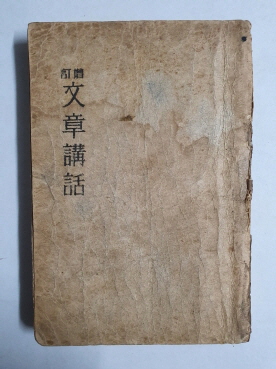 增訂
文章講話